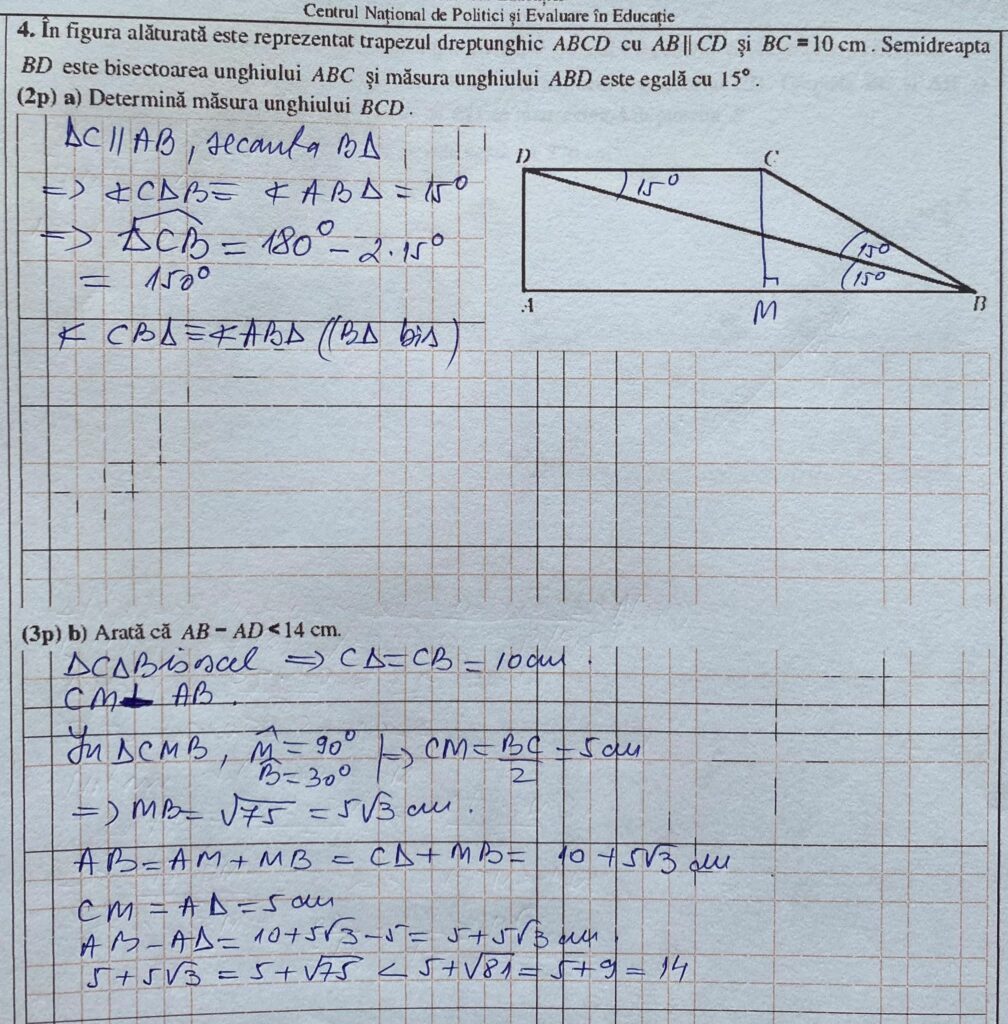 Centrul Național de Politici și Evaluare în Educație
4. În figura alăturată este reprezentat trapezul dreptunghic ABCD cu AB || CD și BC = 10 cm. Semidreapta
BD este bisectoarea unghiului ABC și măsura unghiului ABD este egală cu 15°.
(2p) a) Determină măsura unghiului BCD.
DC || AB, secanta BD
=> ∢CDB ≡ ∢ABD = 15°
=> DCB = 180° - 2·15°
= 150°
∢ CBD ≡ ∢ABD (BD bis)
D
C
15°
15°
15°
A
M
B
(3p) b) Arată că AB − AD < 14 cm.
ΔCDB isoscel => CD = CB = 10 cm.
CM ⊥ AB.
În ΔCMB, M = 90° | => CM = BC/2 = 5 cm
B = 30°
=> MB = √75 = 5√3 cm.
AB = AM + MB = CD + MB = 10 + 5√3 cm
CM = AD = 5 cm
AB - AD = 10 + 5√3 - 5 = 5 + 5√3 cm.
5 + 5√3 = 5 + √75 < 5 + √81 = 5 + 9 = 14